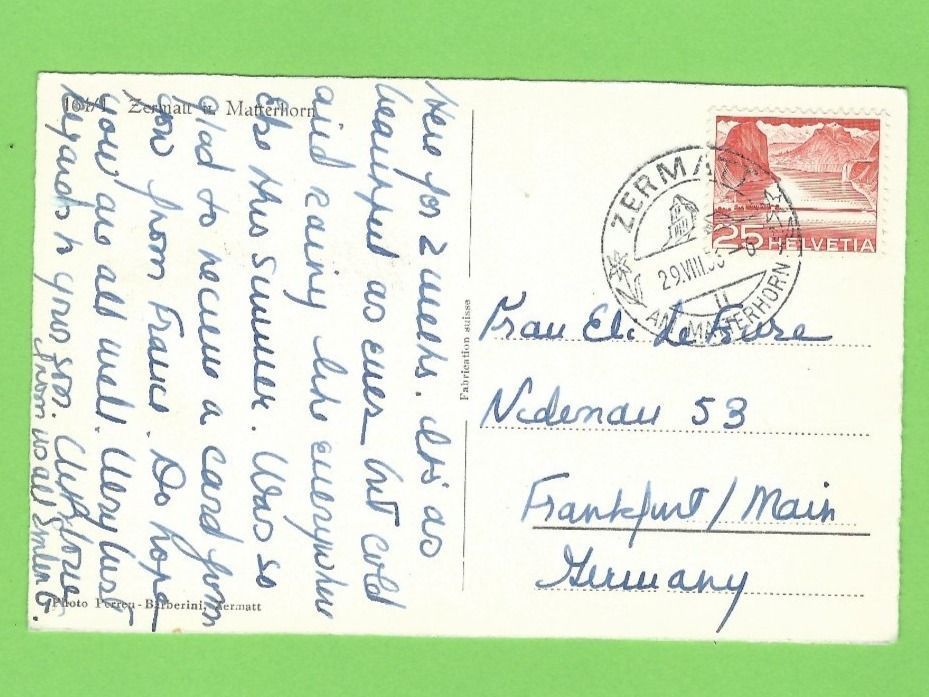 164/1 Zermatt u. Matterhorn
Here for 2 weeks. It's as
beautiful as ever but cold
and rainy like everywhere
else this summer. Was so
glad to receive a card from
you from France. Do hope
you are all well. Very best
regards to your son.
from us all
Photo Perren-Barberini, Zermatt
Fabrication suisse
ZERMATT
29.VIII.5
AM MATTERHORN
25 HELVETIA
Frau El.
Niedenau 53
Frankfurt / Main
Germany